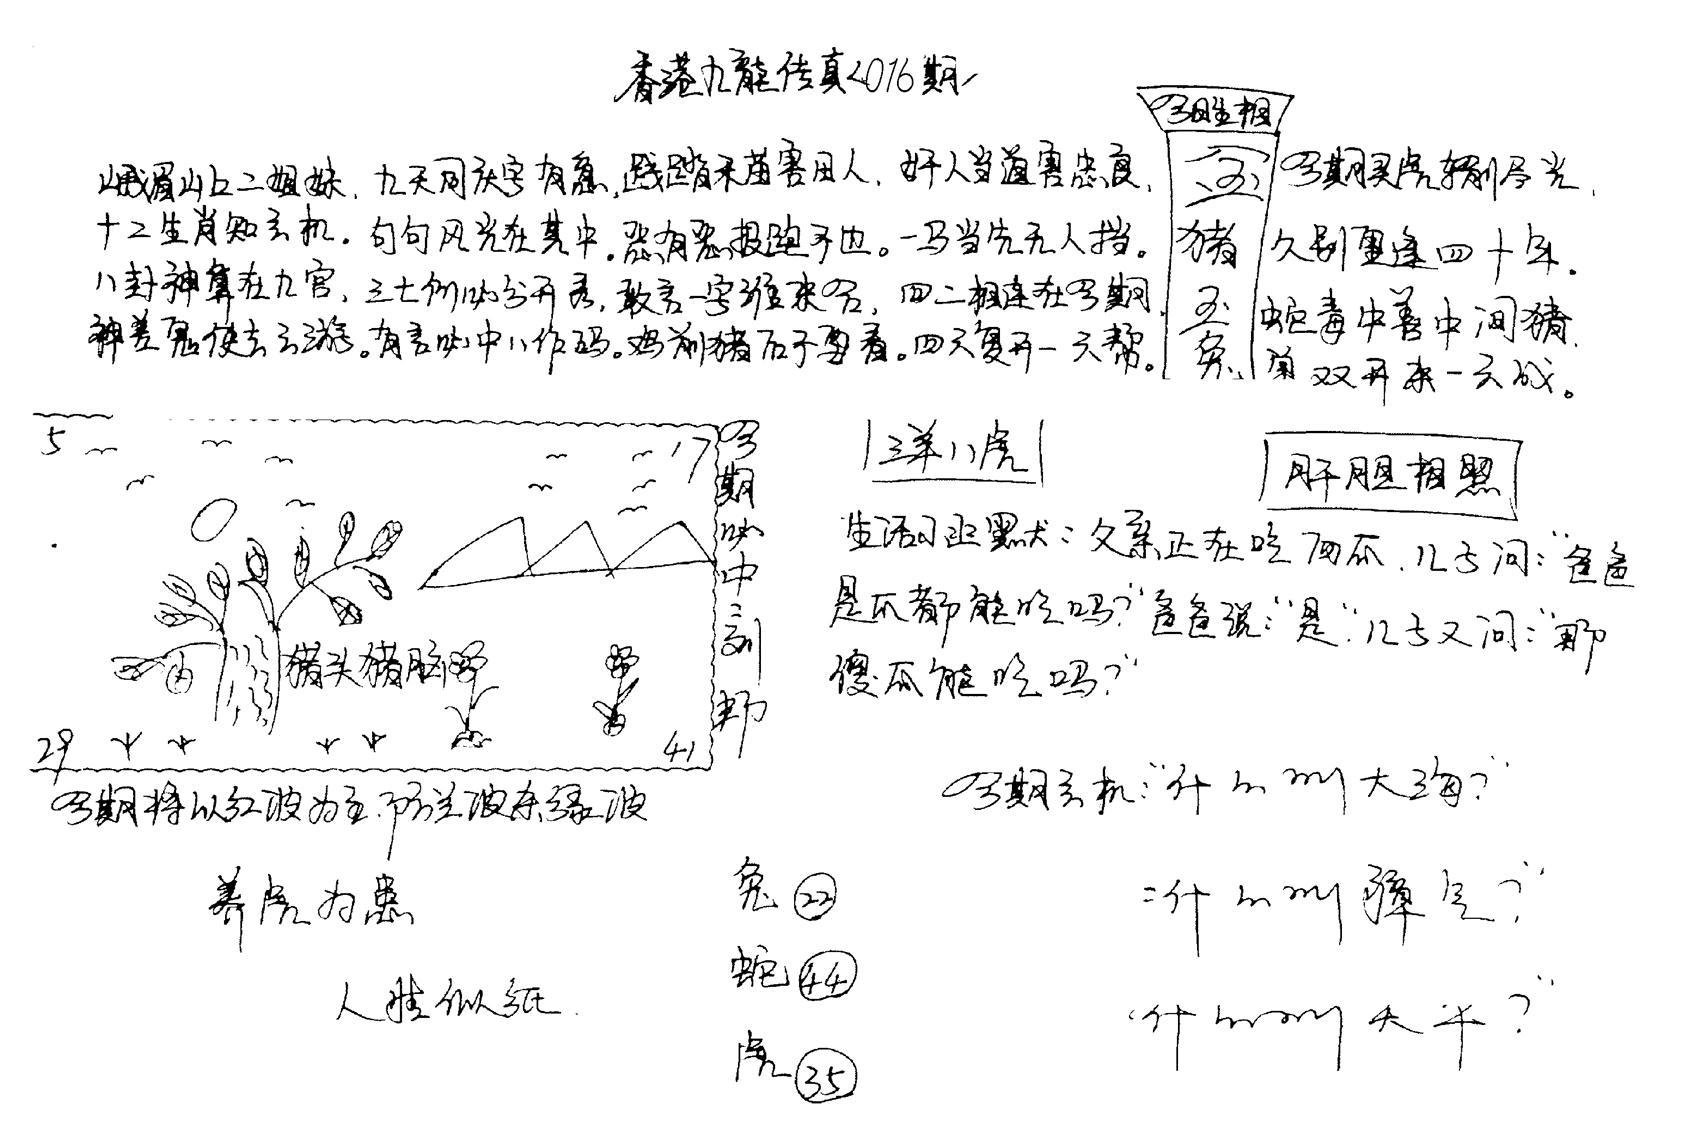 香港九龍传真2016期
峨眉山上二姐妹，九天同庆字有意，践踏禾苗害田人，奸人当道害忠良，
十二生肖知玄机。句句风光在其中。恶有恶报跑不也。一马当先无人挡。
八卦神算在九宫，三七例必分开查，敢言一字谁来召，四二相连在今期，
神差鬼使去云游。有言必中八作码。鸡前猪后子要看。四六复开一六帮。
今日生相
金
玉
猪
玉
兔
今期买虎转别尽光，
久别重逢四十年。
蛇毒中善中间猪，
双开来一六战。
5
17
29
41
猪头猪脑
今期必中:刘邦
今期将以红波为主，防兰波杀绿波
养虎为患
人生似纸
兔 22
蛇 44
虎 35
三羊八虎
肝胆相照
生活习班墨犬:父亲正在吃西瓜，儿子问:"爸爸
是瓜都能吃吗?"爸爸说:"是"儿子又问:"那
傻瓜能吃吗?"
今期玄机:"什么叫大海?"
:什么叫 气?"
什么叫天平?"